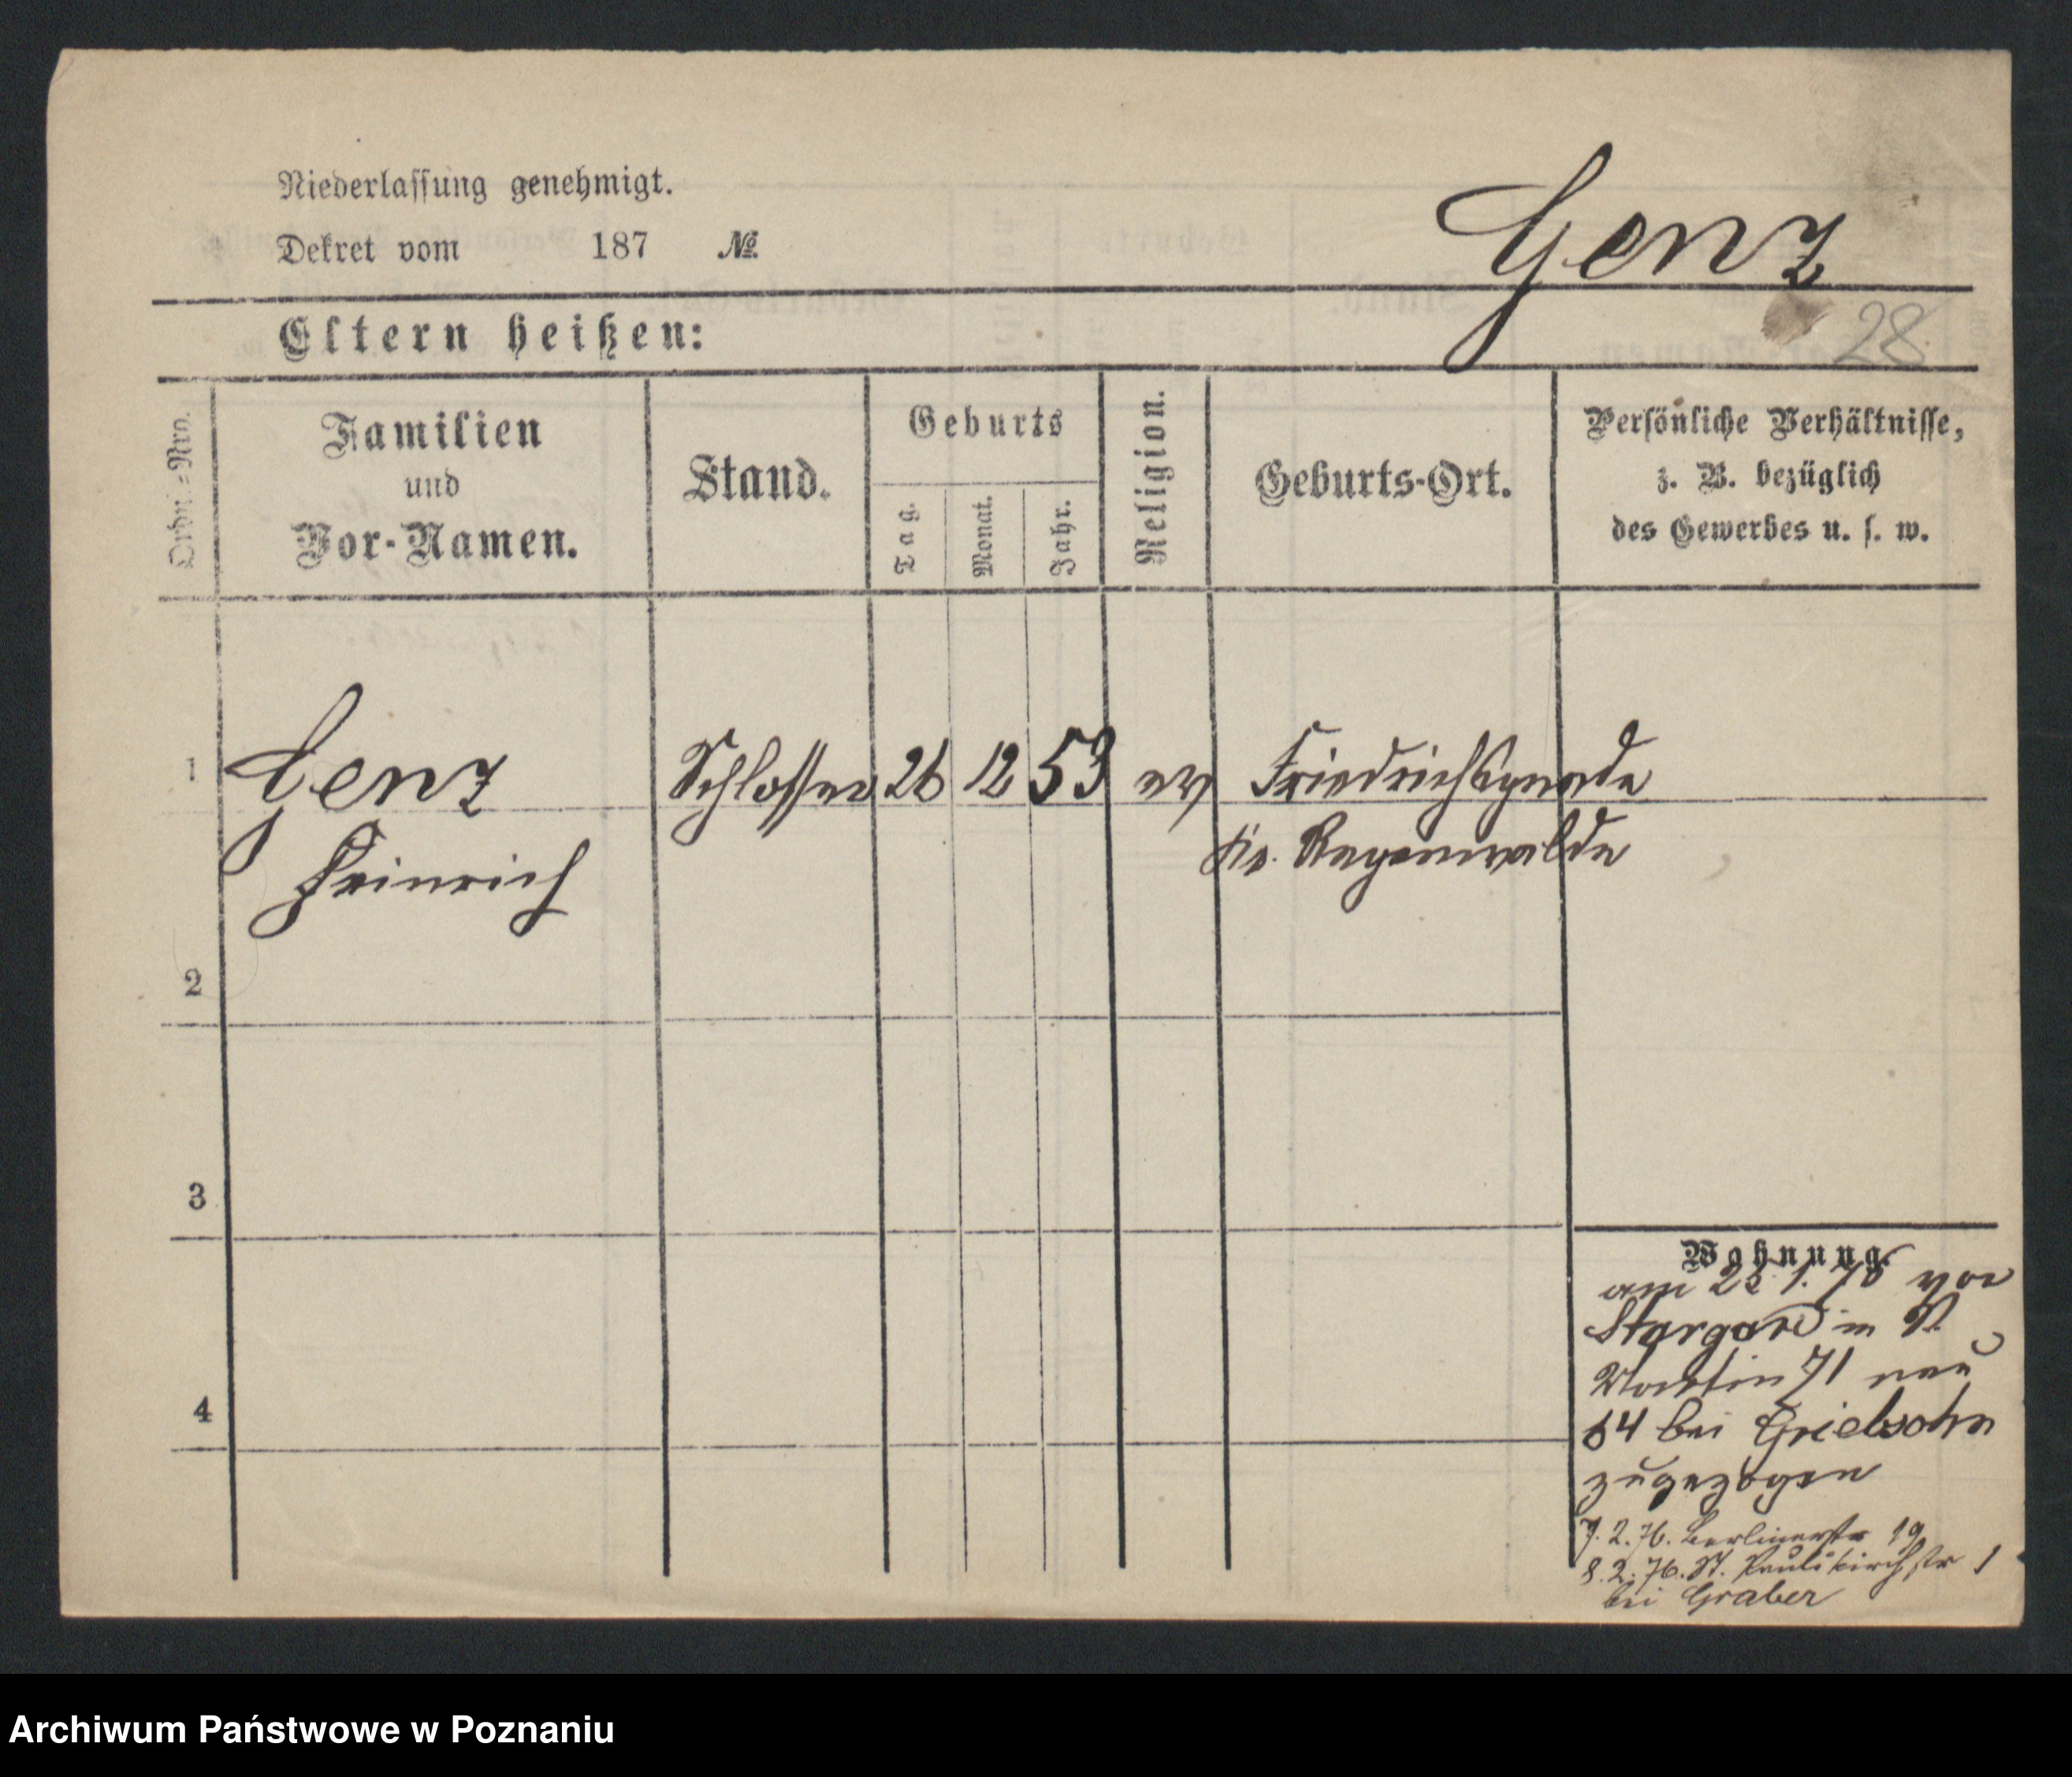 Niederlassung genehmigt.
Dekret vom 187 №
Genz
Eltern heißen:
28
Ordn.-Nro.
Familien
und
Vor-Namen.
Stand.
Geburts
Tag.
Monat.
Jahr.
Religion.
Geburts-Ort.
Persönliche Verhältnisse,
z. B. bezüglich
des Gewerbes u. s. w.
1 Genz Schlosser 26 12 53 ev Friedrichsgnade
Heinrich Kr. Regenwalde
2
3
4
Wohnung.
am 1. 76 von
Stargard in St.
Martin 71 neu
64 bei
zugezogen
7. 2. 76. Berlinerstr 19
8. 2. 76. St. Paulikirchstr 1
bei Graber
Archiwum Państwowe w Poznaniu